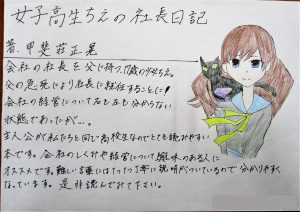 女子高生ちえの社長日記
著.甲斐荘正晃
会社の社長を父に持つ、17歳の少女ちえ。
父の急死により社長に就任することに!
会社の経営について右も左も分からない
状態であったが…。
主人公が私たちと同じ高校生なのでとても読みやすい
本です。会社のしくみや経営について興味のある人に
オススメです。難しい言葉には1つ1つ丁寧に説明がついているので分かりやすく
なっています。是非読んでみて下さい。